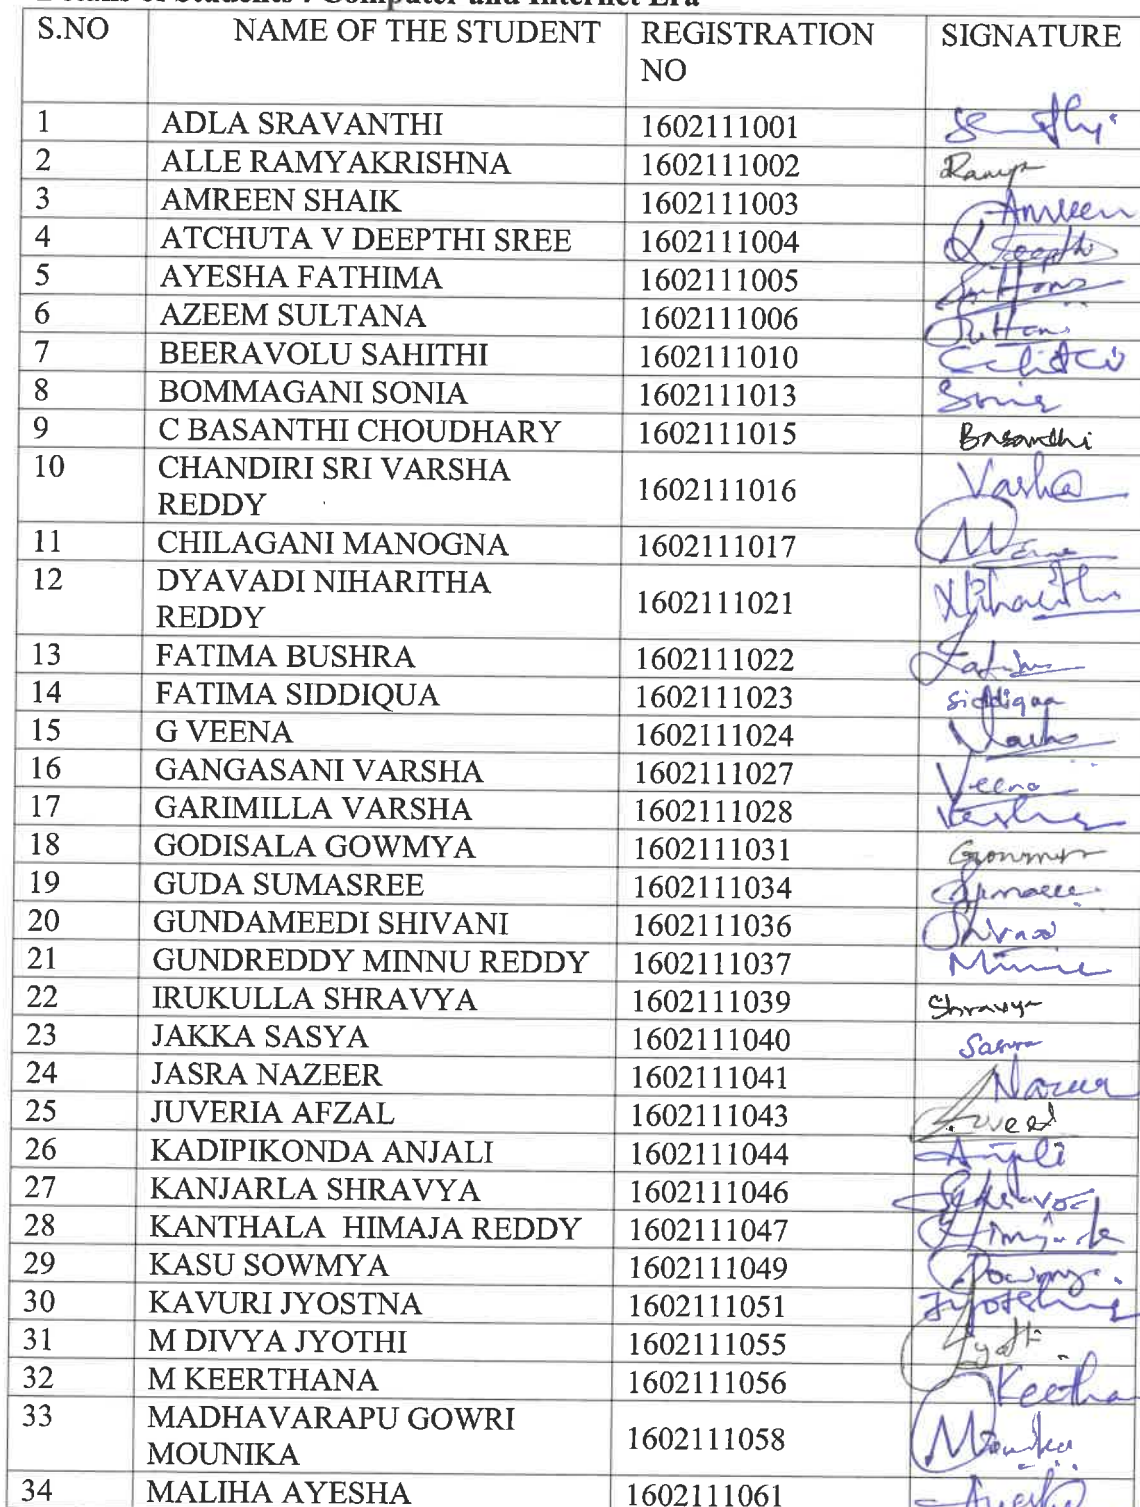 Details of Students : Computer and Internet Era
S.NO NAME OF THE STUDENT REGISTRATION SIGNATURE
NO
1 ADLA SRAVANTHI 1602111001
2 ALLE RAMYAKRISHNA 1602111002 Ramya
3 AMREEN SHAIK 1602111003 Amreen
4 ATCHUTA V DEEPTHI SREE 1602111004 Deepthi
5 AYESHA FATHIMA 1602111005
6 AZEEM SULTANA 1602111006
7 BEERAVOLU SAHITHI 1602111010
8 BOMMAGANI SONIA 1602111013 Sonia
9 C BASANTHI CHOUDHARY 1602111015 Basanthi
10 CHANDIRI SRI VARSHA
REDDY 1602111016 Varsha
11 CHILAGANI MANOGNA 1602111017
12 DYAVADI NIHARITHA
REDDY 1602111021 Niharitha
13 FATIMA BUSHRA 1602111022 Fatima
14 FATIMA SIDDIQUA 1602111023 Siddiqua
15 G VEENA 1602111024
16 GANGASANI VARSHA 1602111027 Veena
17 GARIMILLA VARSHA 1602111028 Varsha
18 GODISALA GOWMYA 1602111031 Gowmya
19 GUDA SUMASREE 1602111034
20 GUNDAMEEDI SHIVANI 1602111036 Shivani
21 GUNDREDDY MINNU REDDY 1602111037 Minnu
22 IRUKULLA SHRAVYA 1602111039 Shravya
23 JAKKA SASYA 1602111040 Sasya
24 JASRA NAZEER 1602111041 Nazeer
25 JUVERIA AFZAL 1602111043
26 KADIPIKONDA ANJALI 1602111044 Anjali
27 KANJARLA SHRAVYA 1602111046
28 KANTHALA HIMAJA REDDY 1602111047
29 KASU SOWMYA 1602111049 Sowmya
30 KAVURI JYOSTNA 1602111051
31 M DIVYA JYOTHI 1602111055 Jyothi
32 M KEERTHANA 1602111056
33 MADHAVARAPU GOWRI
MOUNIKA 1602111058 Mounika
34 MALIHA AYESHA 1602111061 Ayesha